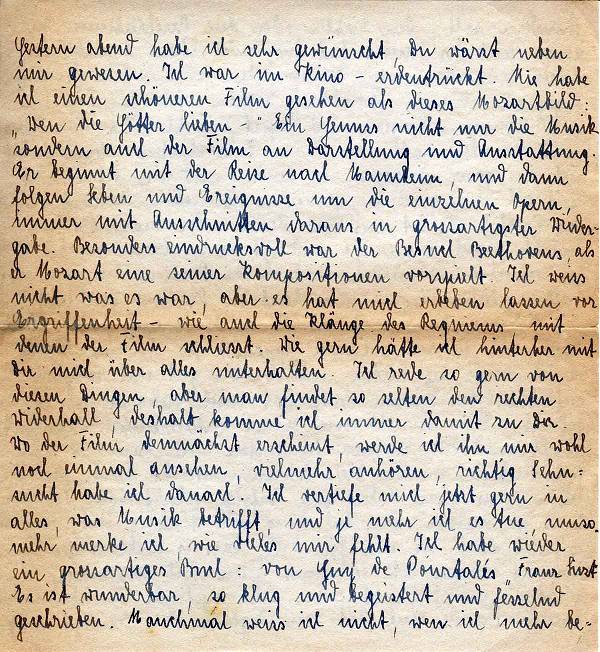 Gestern abend habe ich sehr gewünscht, Du wärst neben
mir gewesen. Ich war im Kino - erdentrückt. Nie habe
ich einen schöneren Film gesehen als dieses Mozartbild:
"Wen die Götter lieben -" Ein Genuss nicht nur die Musik
sondern auch der Film an Darstellung und Ausstattung.
Er beginnt mit der Reise nach Mannheim, und dann
folgen Leben und Ereignisse um die einzelnen Opern,
immer mit Ausschnitten daraus in grossartigster Wieder-
gabe. Besonders eindrucksvoll war der Besuch Beethovens, als
er Mozart eine seiner Kompositionen vorspielt. Ich weiss
nicht was es war, aber es hat mich erbeben lassen vor
Ergriffenheit - wie auch die Klänge des Requiems mit
denen der Film schliesst. Wie gern hätte ich hinterher mit
Dir mich über alles unterhalten. Ich rede so gern von
diesen Dingen, aber man findet so selten den rechten
Widerhall, deshalb komme ich immer damit zu Dir.
Wo der Film demnächst erscheint, werde ich ihn mir wohl
noch einmal ansehen, vielmehr anhören, richtig Sehn=
sucht habe ich danach. Ich vertiefe mich jetzt gern in
alles, was Musik betrifft, und je mehr ich es tue, umso
mehr merke ich, wie vieles mir fehlt. Ich habe wieder
ein grossartiges Buch: von Guy de Pourtalés Franz Liszt
Es ist wunderbar, so klug und begeistert und fesselnd
geschrieben. Manchmal weiss ich nicht, wen ich mehr be-